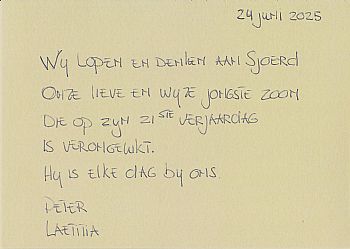 24 juni 2025
Wij lopen en denken aan Sjoerd
Onze lieve en wijze jongste zoon
Die op zijn 21ste verjaardag
is verongelukt.
Hij is elke dag bij ons.
Peter
Laetitia